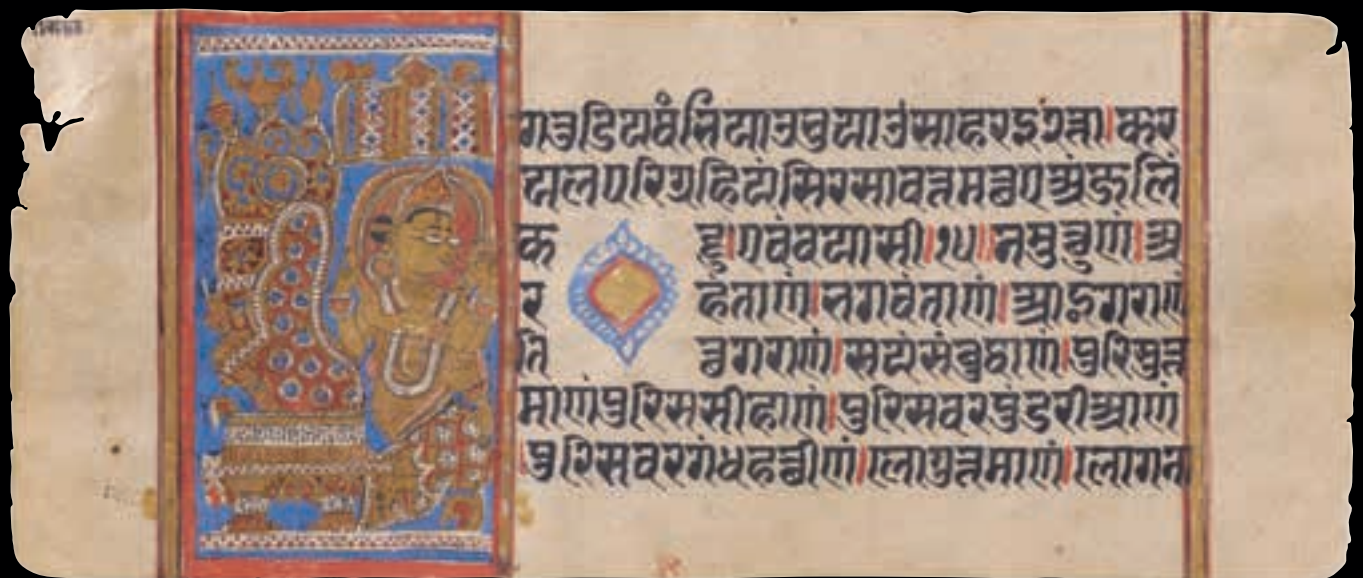 गतुडियथंभियाउभुयाउसाहरइ२त्ता।कर
यलपरिग्गहियंसिरसावत्तमत्थएअंजलिं
क ट्टु।एवंवयासी।१५॥नमुत्थुणं।अ
र हंताणं।भगवंताणं।आइगराणं
ति त्थगराणं।सयंसंबुद्धाणं।पुरिसुत्त
माणंपुरिससीहाणं।पुरिसवरपुंडरीआणं
।पुरिसवरगंधहत्थीणं।लोगुत्तमाणं।लोगना